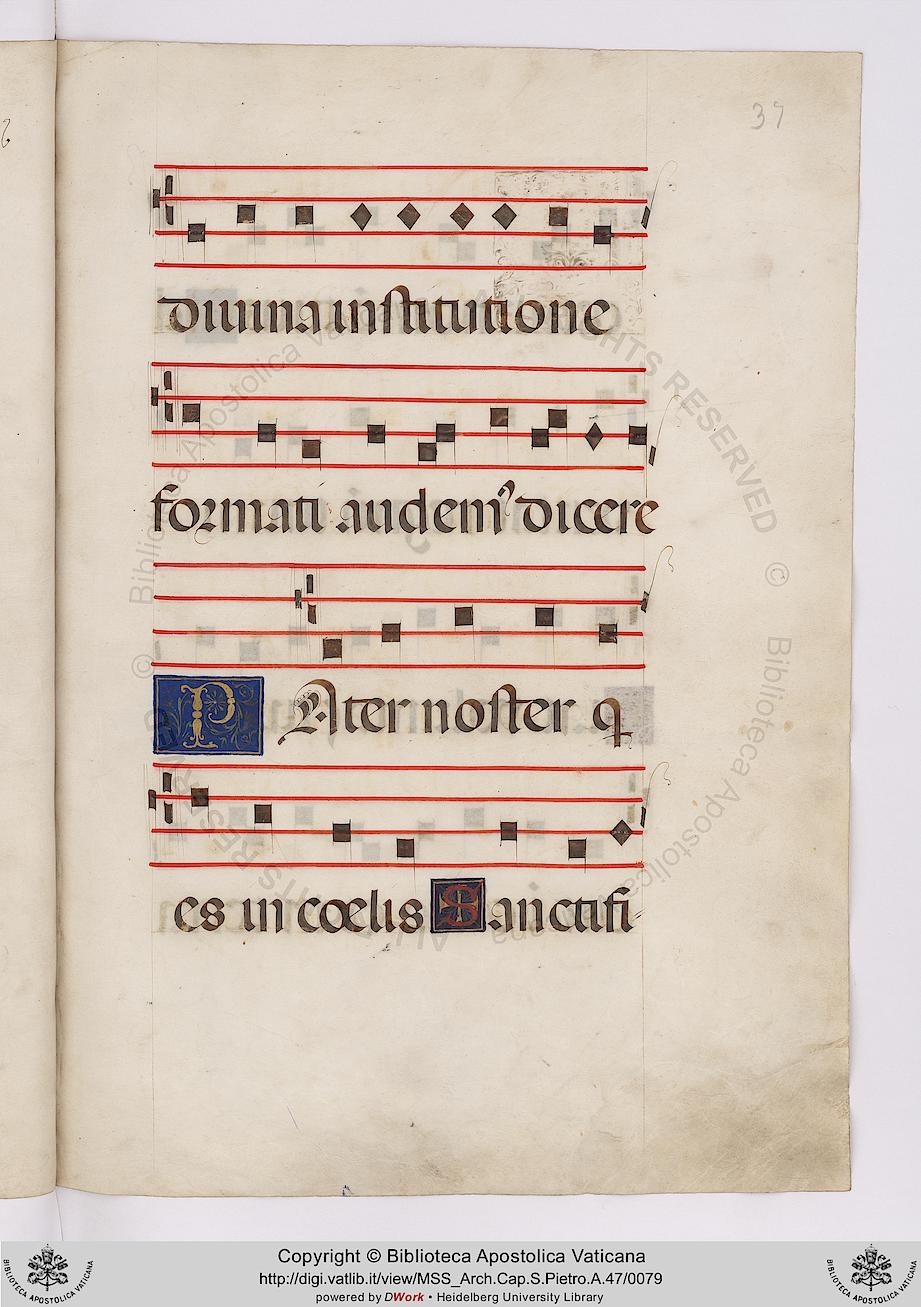 37
diuina institutione
formati audem⁹ dicere
PAter noster q
es in cœlis Sanctifi
Copyright © Biblioteca Apostolica Vaticana
http://digi.vatlib.it/view/MSS_Arch.Cap.S.Pietro.A.47/0079
powered by DWork • Heidelberg University Library
BIBLIOTECA APOSTOLICA VATICANA
BIBLIOTECA APOSTOLICA VATICANA